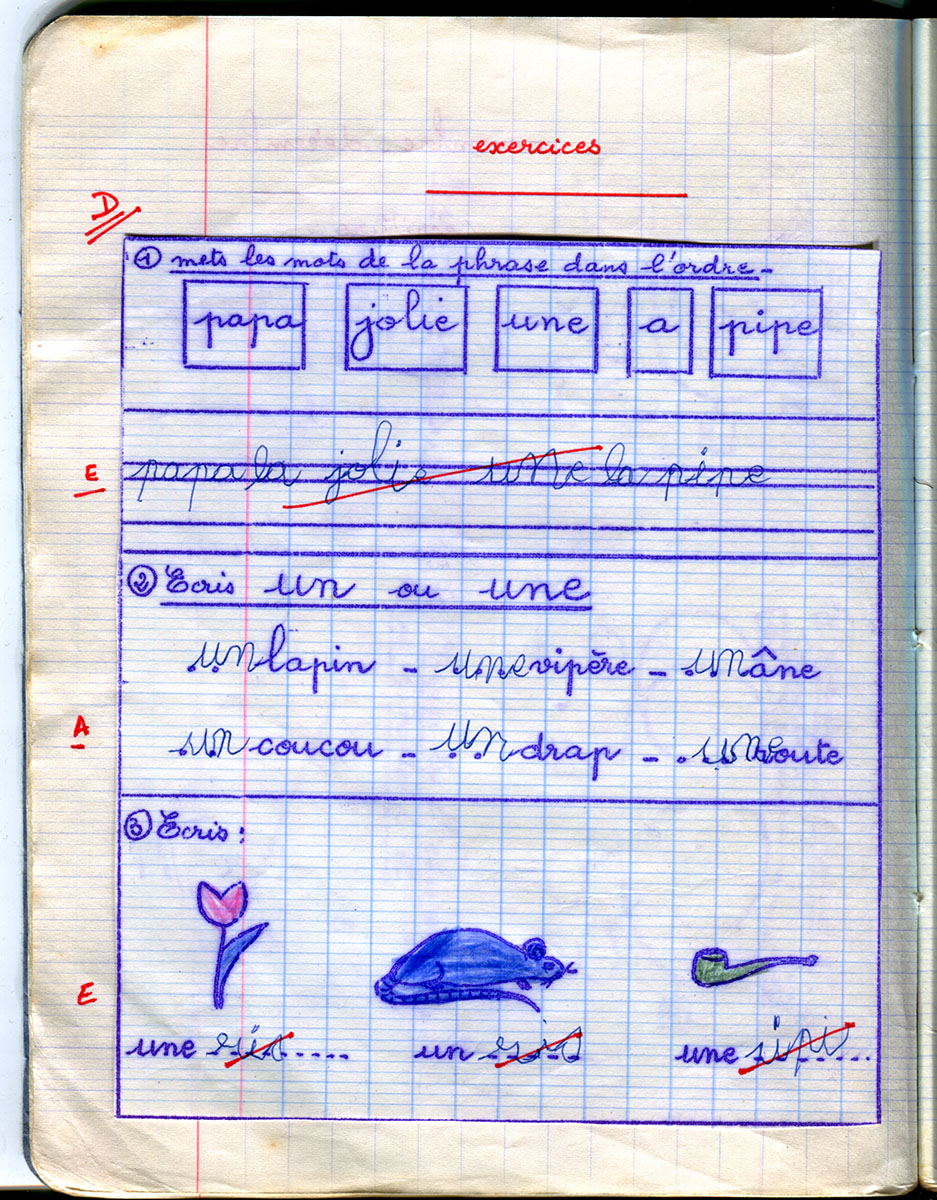 exercices
D
① mets les mots de la phrase dans l'ordre -
papa jolie une a pipe
E papa la jolie une la pipe
② Ecris un ou une
un lapin - une vipère - un âne
A un coucou - un drap - une route
③ Ecris :
E
une un une sipi